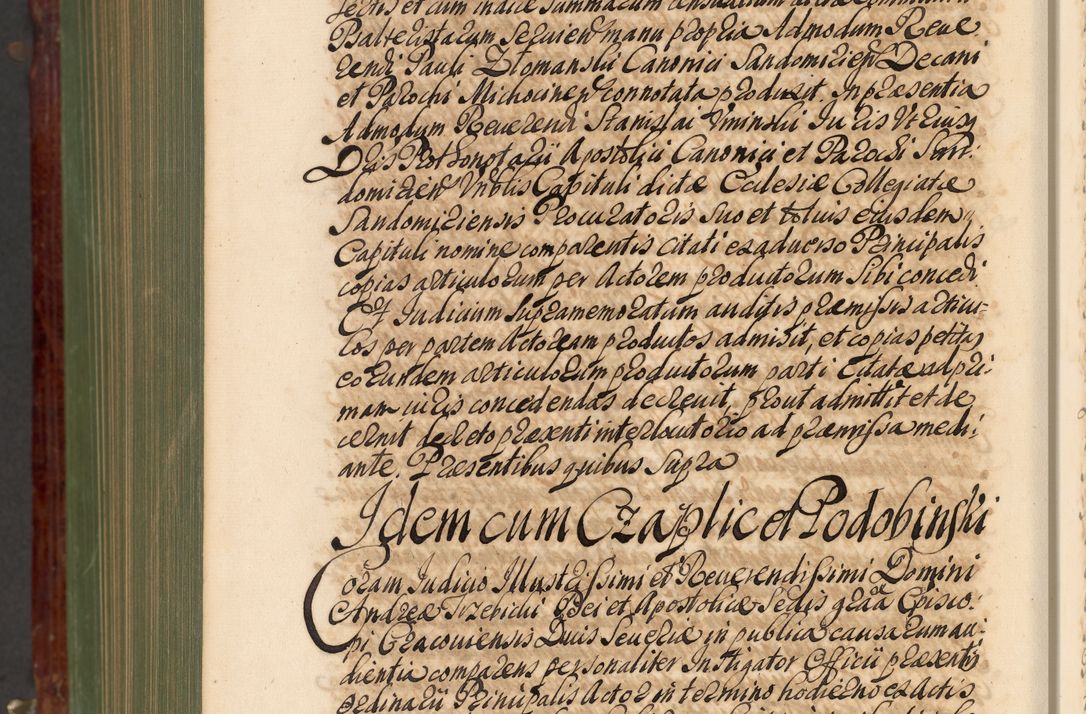 fectis et cum indice summarum
Balteristarum Servien manu propria Admodum Reve
rendi Pauli Zlomanski Canonici Sandomirien Decani
et Parochi Michocinen connotata produxit. In præsentia
Admodum Reverendi Stanislai Uminski Juris Utriusq
Dris Prothonotarii Apostolici Canonici et Parochi San:
domirien Vnblis Capituli dictæ Ecclesiæ Collegiatæ
Sandomiriensis Procuratoris suo et totius eiusdem
Capituli nomine comparentis citati ex adverso Principalis
copias articulorum per Actorem productorum sibi concedi.
Et Iudicium supramemoratum auditis præmissis articu-
los per partem Actoream productos admisit, et copias petitas
eorundem articulorum productorum parti Citatæ ad pri-
mam iuris concedendas decrevit, prout admittit et de
cernit decreto præsenti interlocutorio ad præmissa medi-
ante. Præsentibus quibus supra
Idem cum Czaplic et Podobinski
Coram Iudicio Illustrissimi et Reverendissimi Domini
Andreæ Trzebicki Dei et Apostolicæ Sedis graa Episco-
pi Cracoviensis Ducis Severiæ in publica causarum au-
dientia comparens personaliter Instigator Officii præsentis
ordinarii Principalis Actor in termino hodierno ex Actis